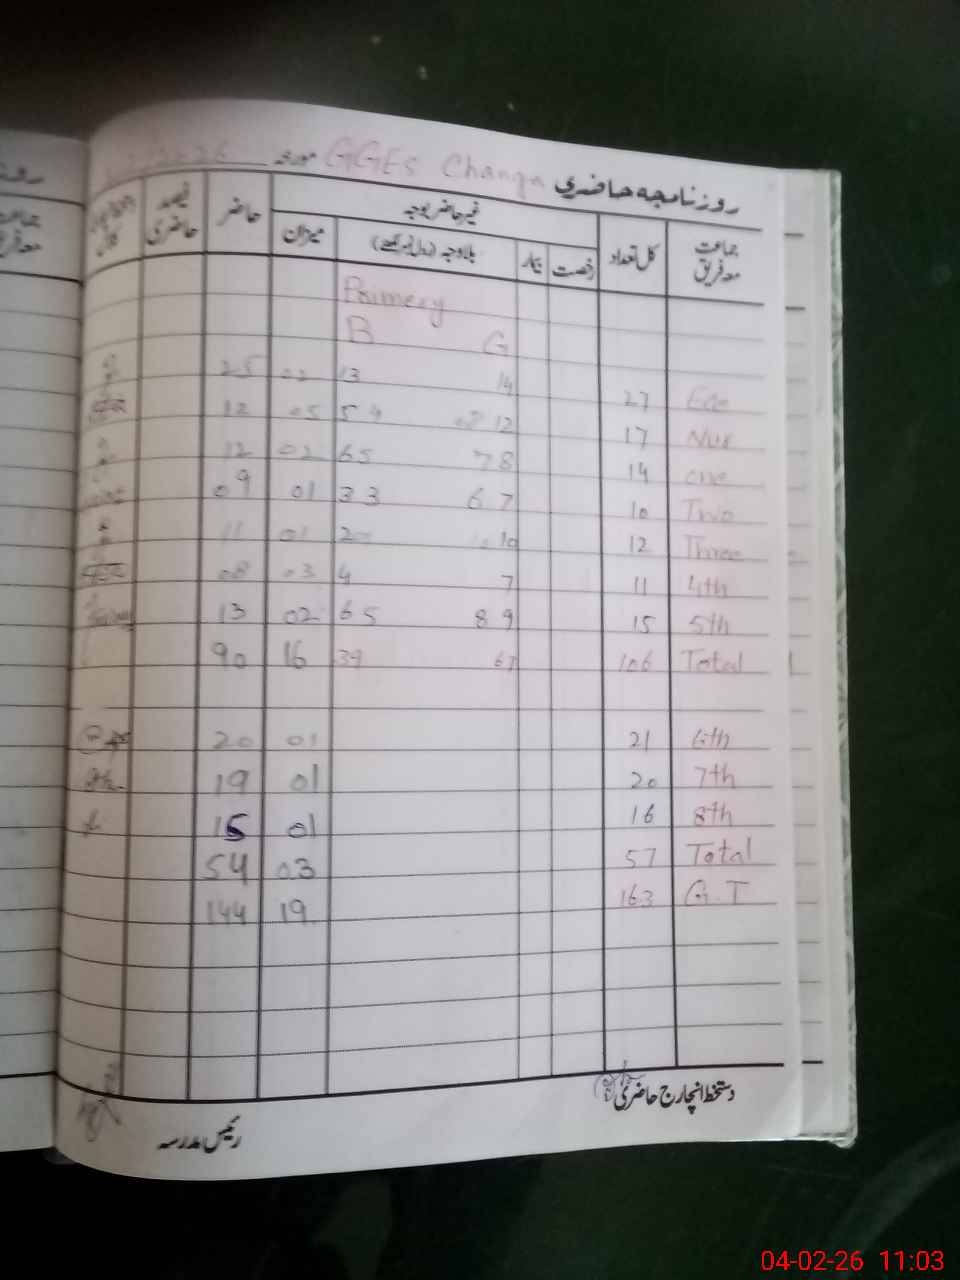 روزنامچہ حاضری GGEs Changa مورخہ
جماعت معہ فریق کل تعداد غیر حاضر بوجہ حاضر فیصد حاضری
رخصت بیمار بلاوجہ (رول نمبر لکھئے) میزان
Primery
B G
27 13 14 02 25
Nur 17 5 4 12 05 12
one 14 6 5 7 8 02 12
Two 10 3 3 6 7 01 09
Three 12 2 10 01 11
4th 11 4 7 03 08
5th 15 6 5 8 9 02 13
Total 106 39 67 16 90
6th 21 01 20
7th 20 01 19
8th 16 01 15
Total 57 03 54
G.T 163 19 144
دستخط انچارج حاضری
رئیس مدرسہ
روز
جماعت
معہ فریق
04-02-26 11:03